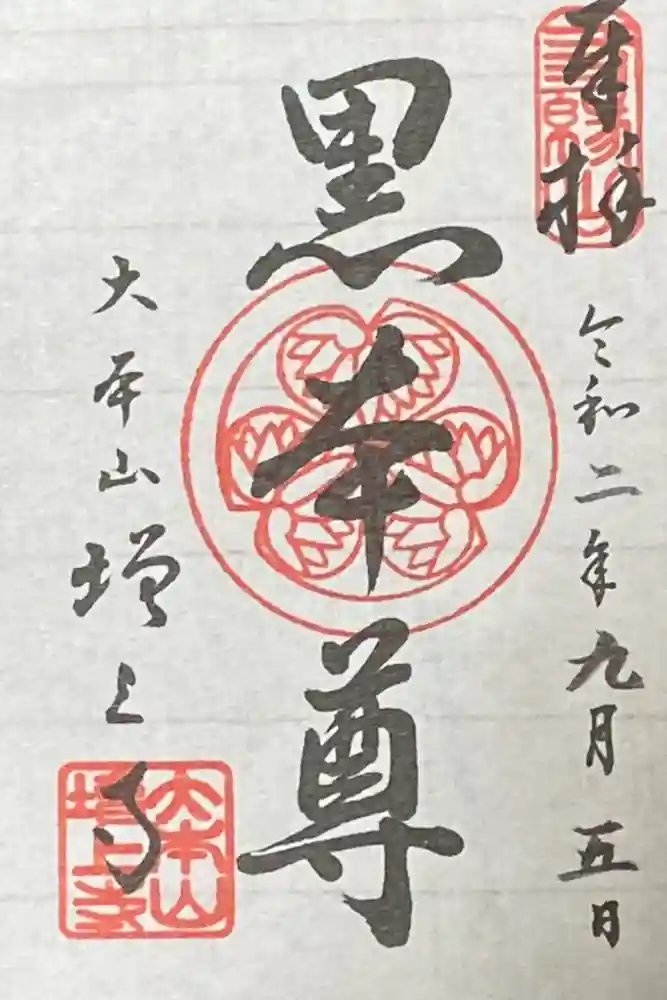 奉拝
三縁山
令和二年九月五日
黒本尊
大本山増上寺
大本山
増上寺